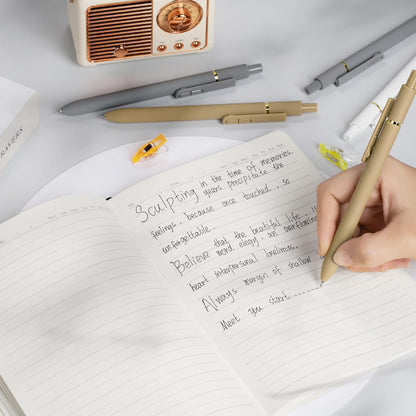 Sculpting in the time of memories.
years precipitate the
feelings.. because once touched.. so
unforgettable..
Believe that the beautiful life.. is
word elegy.. an overflowing
heart interpersonal loneliness..
Always margin of shallow
Meet you start